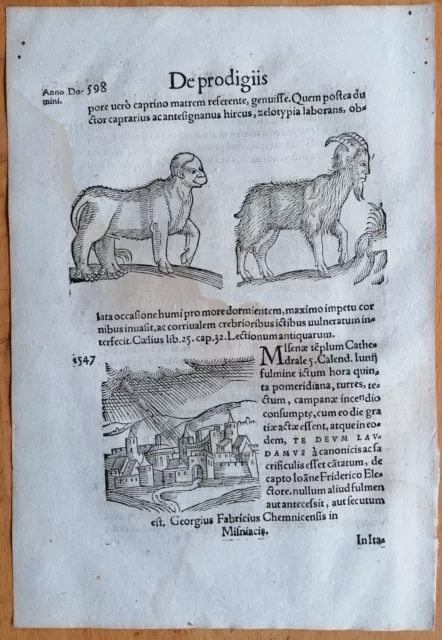 Anno Do-
mini.
598
De prodigiis
pore uerò caprino matrem referente, genuisse. Quem postea du
ctor caprarius ac antesignanus hircus, zelotypia laborans, ob-
lata occasione humi pro more dormientem, maximo impetu cor
nibus inuasit, ac corriualem crebrioribus ictibus uulneratum in-
terfecit. Cælius lib. 25. cap. 32. Lectionum antiquarum.
1547
MIsenæ tẽplum Cathe
drale 5. Calend. Iunij
fulmine ictum hora quin
ta pomeridiana, turres, te-
ctum, campanæ incendio
consumptę, cum eo die gra
tiæ actæ essent, atque in eo-
dem, TE DEVM LAV
DAMVS à canonicis ac sa
crificulis esset cãtatum, de
capto Ioãne Friderico Ele
ctore. nullum aliud fulmen
aut antecessit, aut secutum
est. Georgius Fabricius Chemnicensis in
Misniacis.
In Ita-